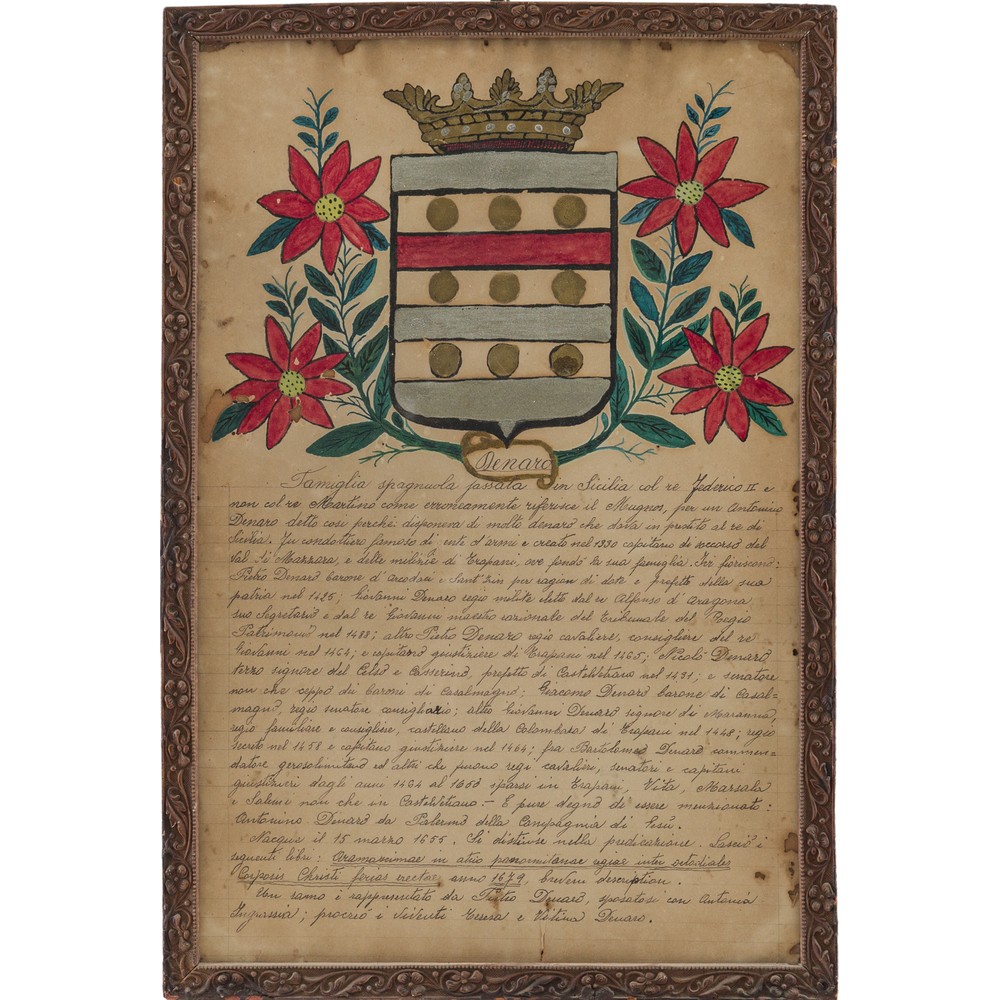 Denaro
Famiglia spagnuola passata in Sicilia col re Federico II e
non col re Martino come erroneamente riferisce il Mugnos, per un Antonino
Denaro detto così perchè disponeva di molto denaro che dava in prestito al re di
Sicilia. Fu condottiero famoso di genti d'armi e creato nel 1330 capitano di soccorso del
Val di Mazzara, e delle milizie di Trapani, ove fondò la sua famiglia. Ivi fiorirono:
Pietro Denaro barone d'Arcodaci e Sant'Zin per ragion di dote e prefetto della sua
patria nel 1425; Giovanni Denaro regio milite eletto dal re Alfonso di Aragona
suo Segretario e dal re Giovanni maestro razionale del Tribunale del Regio
Patrimonio nel 1488; altro Pietro Denaro regio cavaliere, consigliere del re
Giovanni nel 1464; e capitano giustiziere di Trapani nel 1465; Nicolò Denaro,
terzo signore del Celso e Casserino, prefetto di Castelvetrano nel 1431; e senatore
non che ceppo dei baroni di Casalmagno; Giacomo Denaro barone di Casal=
magno, regio senatore consigliario; altro Giovanni Denaro signore di Maranna,
regio familiare e consigliere, castellano della Colombara di Trapani nel 1448; regio
secreto nel 1458 e capitano giustiziere nel 1464; fra Bartolomeo Denaro commen-
datore gerosolimitano ed altri che furono regi cavalieri, senatori e capitani
giustizieri dagli anni 1464 al 1653 sparsi in Trapani, Vita, Marsala
e Salemi non che in Castelvetrano. - È pure degno di essere menzionato:
Antonino Denaro da Palermo della Compagnia di Gesù.
Nacque il 15 marzo 1655. Si distinse nella predicazione. Lasciò i
seguenti libri: in atrio panormitanae regiae inter octodiales
Corporis Christi ferias erectae anno 1679, brevem description.
Un ramo è rappresentato da Pietro Denaro, sposatosi con Antonia
Ingrassia; procreò i viventi Teresa e Vitina Denaro.